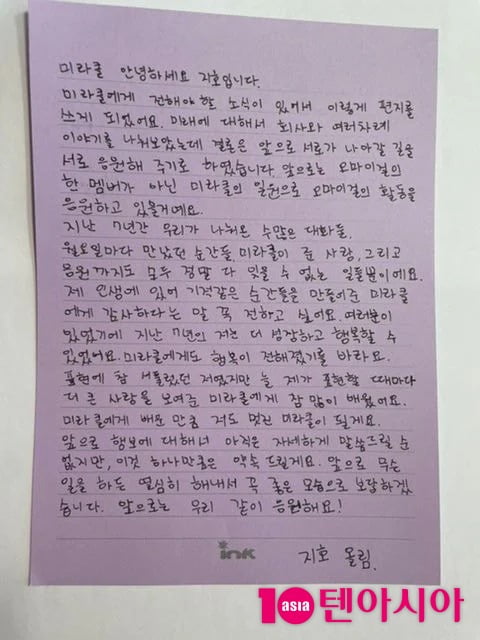 미라클 안녕하세요 지호입니다.
미라클에게 전해야 할 소식이 있어서 이렇게 편지를
쓰게 되었어요. 미래에 대해서 회사와 여러차례
이야기를 나눠보았는데 결론은 앞으로 서로가 나아갈 길을
서로 응원해 주기로 하였습니다. 앞으로는 오마이걸의
한 멤버가 아닌 미라클의 일원으로 오마이걸의 활동을
응원하고 있을거예요.
지난 7년간 우리가 나눠온 수많은 대화들.
월요일마다 만났던 순간들, 미라클이 준 사랑, 그리고
응원까지도 모두 정말 다 잊을 수 없는 일들뿐이에요.
제 인생에 있어 기적같은 순간들을 만들어준 미라클
에게 감사하다는 말 꼭 전하고 싶어요. 여러분이
있었기에 지난 7년의 저는 더 성장하고 행복할 수
있었어요. 미라클에게도 행복이 전해졌기를 바라요.
표현에 참 서툴렀던 저였지만 늘 제가 표현할 때마다
더 큰 사랑을 보여준 미라클에게 참 많이 배웠어요.
미라클에게 배운 만큼 저도 멋진 미라클이 될게요.
앞으로 행보에 대해서 아직은 자세하게 말씀드릴 순
없지만, 이것 하나만큼은 약속 드릴게요. 앞으로 무슨
일을 하든 열심히 해내서 꼭 좋은 모습으로 보답하겠
습니다. 앞으로는 우리 같이 응원해요!
ink
지호 올림.
10 asia 텐아시아